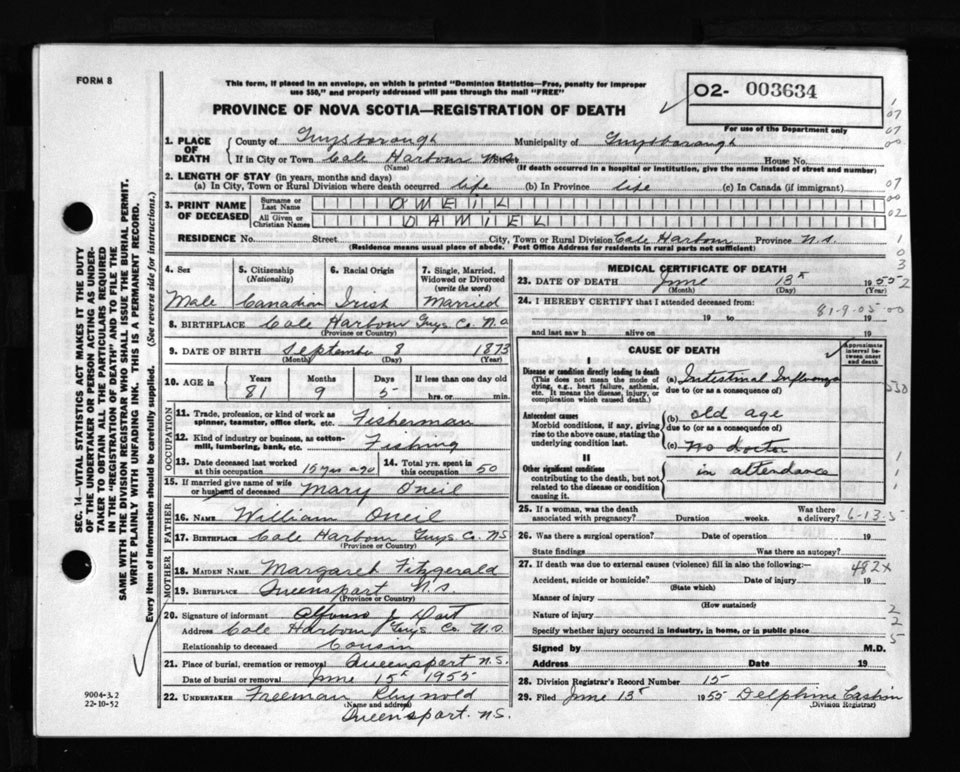 FORM 8
This form, if placed in an envelope, on which is printed "Dominion Statistics—Free, penalty for improper
use $50," and properly addressed will pass through the mail "FREE"
PROVINCE OF NOVA SCOTIA—REGISTRATION OF DEATH
O2- 003634
For use of the Department only
1. PLACE OF DEATH
County of Guysborough Municipality of Guysborough
If in City or Town Cole Harbour House No.
(Name) (If death occurred in a hospital or institution, give the name instead of street and number)
2. LENGTH OF STAY (in years, months and days)
(a) In City, Town or Rural Division where death occurred life (b) In Province life (c) In Canada (if immigrant)
3. PRINT NAME OF DECEASED
Surname or Last Name ONEIL
All Given or Christian Names DANIEL
RESIDENCE No. Street City, Town or Rural Division Cole Harbour Province N.S.
(Residence means usual place of abode. Post Office Address for residents in rural parts not sufficient)
4. Sex
Male
5. Citizenship
(Nationality)
Canadian
6. Racial Origin
Irish
7. Single, Married,
Widowed or Divorced
(write the word)
Married
8. BIRTHPLACE Cole Harbour Guys. Co. N.S
(Province or Country)
9. DATE OF BIRTH September 8 1873
(Month) (Day) (Year)
10. AGE in Years Months Days If less than one day old
81 9 5 hrs. or min.
OCCUPATION
11. Trade, profession, or kind of work as
spinner, teamster, office clerk, etc. Fisherman
12. Kind of industry or business, as cotton-
mill, lumbering, bank, etc. Fishing
13. Date deceased last worked
at this occupation 15 yrs ago
14. Total yrs. spent in
this occupation 50
15. If married give name of wife
or husband of deceased Mary O'neil
FATHER
16. NAME William Oneil
17. BIRTHPLACE Cole Harbour Guys Co. NS
(Province or Country)
MOTHER
18. MAIDEN NAME Margaret Fitzgerald
19. BIRTHPLACE Queensport N.S.
(Province or Country)
20. Signature of informant J.
Address Cole Harbour Guys Co. N.S.
Relationship to deceased Cousin
21. Place of burial, cremation or removal Queensport N.S.
Date of burial or removal June 15th 1955
22. UNDERTAKER Freeman Rhynold
(Name and address)
Queensport. N.S.
MEDICAL CERTIFICATE OF DEATH
23. DATE OF DEATH June 13th 1955
(Month) (Day) (Year)
24. I HEREBY CERTIFY that I attended deceased from:
19 to 19
81-9-05-00
and last saw h alive on 19
CAUSE OF DEATH
Approximate
interval be-
tween onset
and death
I
Disease or condition directly leading to death
(This does not mean the mode of
dying, e.g., heart failure, asthenia,
etc. It means the disease, injury, or
complication which caused death.)
(a) Intestinal Influenza
due to (or as a consequence of)
Antecedent causes
Morbid conditions, if any, giving
rise to the above cause, stating the
underlying condition last.
(b) old age
due to (or as a consequence of)
(c) no doctor
II
Other significant conditions
contributing to the death, but not
related to the disease or condition
causing it.
in attendance
25. If a woman, was the death
associated with pregnancy? Duration weeks. Was there
a delivery? 6-13-5
26. Was there a surgical operation? Date of operation 19
State findings Was there an autopsy?
27. If death was due to external causes (violence) fill in also the following:— 482x
Accident, suicide or homicide? Date of injury 19
(State which)
Manner of injury
(How sustained)
Nature of injury
Specify whether injury occurred in industry, in home, or in public place
Signed by M.D.
Address Date 19
28. Division Registrar's Record Number 15
29. Filed June 13th 1955 Delphine Cashin
(Division Registrar)
SEC. 14—VITAL STATISTICS ACT MAKES IT THE DUTY
OF THE UNDERTAKER OR PERSON ACTING AS UNDER-
TAKER TO OBTAIN ALL THE PARTICULARS REQUIRED
IN THE "REGISTRATION OF DEATH" AND TO FILE THE
SAME WITH THE DIVISION REGISTRAR WHO SHALL ISSUE THE BURIAL PERMIT.
WRITE PLAINLY WITH UNFADING INK. THIS IS A PERMANENT RECORD.
Every item of information should be carefully supplied. (See reverse side for instructions.)
9004-3.2
22-10-52